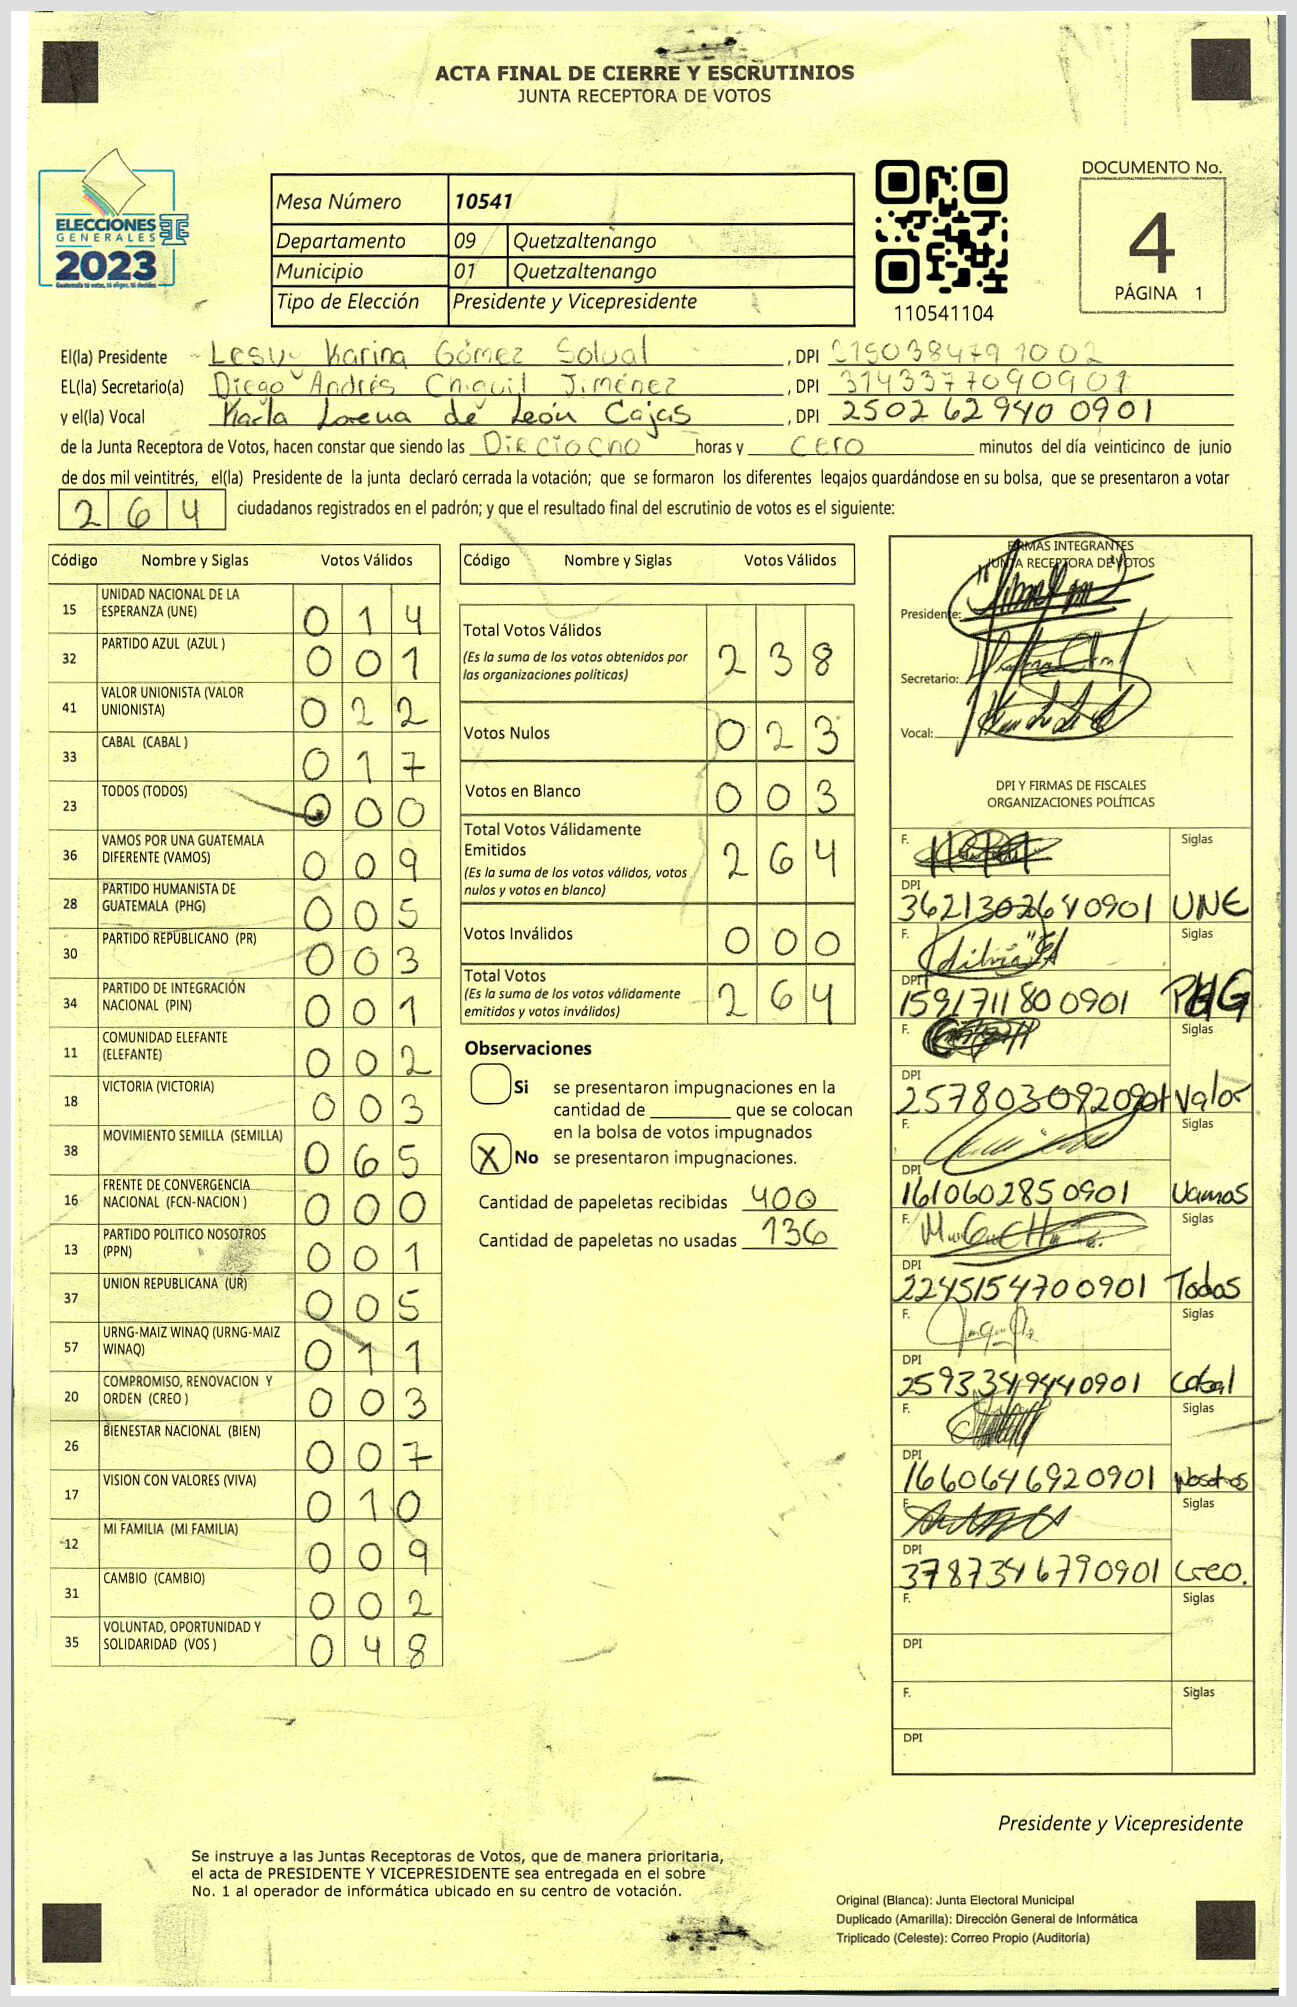 ACTA FINAL DE CIERRE Y ESCRUTINIOS
JUNTA RECEPTORA DE VOTOS
ELECCIONES
GENERALES
2023
Guatemala tú votas, tú eliges, tú decides
Mesa Número 10541
Departamento 09 Quetzaltenango
Municipio 01 Quetzaltenango
Tipo de Elección Presidente y Vicepresidente
110541104
DOCUMENTO No.
4
PÁGINA 1
El(la) Presidente Lesvy Karina Gómez Solval, DPI
EL(la) Secretario(a) Diego Andrés Chiguil Jiménez, DPI 3143377090901
y el(la) Vocal Karla Lorena de León Cajas, DPI 2502 62940 0901
de la Junta Receptora de Votos, hacen constar que siendo las Dieciocho horas y cero minutos del día veinticinco de junio
de dos mil veintitrés, el(la) Presidente de la junta declaró cerrada la votación; que se formaron los diferentes legajos guardándose en su bolsa, que se presentaron a votar
264 ciudadanos registrados en el padrón; y que el resultado final del escrutinio de votos es el siguiente:
Código Nombre y Siglas Votos Válidos
15 UNIDAD NACIONAL DE LA ESPERANZA (UNE) 014
32 PARTIDO AZUL (AZUL ) 001
41 VALOR UNIONISTA (VALOR UNIONISTA) 022
33 CABAL (CABAL ) 017
23 TODOS (TODOS) 000
36 VAMOS POR UNA GUATEMALA DIFERENTE (VAMOS) 009
28 PARTIDO HUMANISTA DE GUATEMALA (PHG) 005
30 PARTIDO REPUBLICANO (PR) 003
34 PARTIDO DE INTEGRACIÓN NACIONAL (PIN) 001
11 COMUNIDAD ELEFANTE (ELEFANTE) 002
18 VICTORIA (VICTORIA) 003
38 MOVIMIENTO SEMILLA (SEMILLA) 065
16 FRENTE DE CONVERGENCIA NACIONAL (FCN-NACION ) 000
13 PARTIDO POLITICO NOSOTROS (PPN) 001
37 UNION REPUBLICANA (UR) 005
57 URNG-MAIZ WINAQ (URNG-MAIZ WINAQ) 011
20 COMPROMISO, RENOVACION Y ORDEN (CREO ) 003
26 BIENESTAR NACIONAL (BIEN) 007
17 VISION CON VALORES (VIVA) 010
12 MI FAMILIA (MI FAMILIA) 009
31 CAMBIO (CAMBIO) 002
35 VOLUNTAD, OPORTUNIDAD Y SOLIDARIDAD (VOS ) 048
Código Nombre y Siglas Votos Válidos
Total Votos Válidos 238
(Es la suma de los votos obtenidos por
las organizaciones políticas)
Votos Nulos 023
Votos en Blanco 003
Total Votos Válidamente
Emitidos 264
(Es la suma de los votos válidos, votos
nulos y votos en blanco)
Votos Inválidos 000
Total Votos 264
(Es la suma de los votos válidamente
emitidos y votos inválidos)
Observaciones
Si se presentaron impugnaciones en la
cantidad de ________ que se colocan
en la bolsa de votos impugnados
X No se presentaron impugnaciones.
Cantidad de papeletas recibidas 400
Cantidad de papeletas no usadas 136
FIRMAS INTEGRANTES
JUNTA RECEPTORA DE VOTOS
Presidente:
Secretario:
Vocal:
DPI Y FIRMAS DE FISCALES
ORGANIZACIONES POLÍTICAS
F. Siglas
DPI 3621302640901 UNE
F. Siglas
DPI 1591711800901 PHG
F. Siglas
DPI Valor
F. Siglas
DPI 1610602850901 Vamos
F. Siglas
DPI 2245154700901 Todos
F. Siglas
DPI 2593349440901 Cabal
F. Siglas
DPI 1660646920901 Nosotros
F. Siglas
DPI 3787346790901 Creo.
F. Siglas
DPI
F. Siglas
DPI
Presidente y Vicepresidente
Se instruye a las Juntas Receptoras de Votos, que de manera prioritaria,
el acta de PRESIDENTE Y VICEPRESIDENTE sea entregada en el sobre
No. 1 al operador de informática ubicado en su centro de votación.
Original (Blanca): Junta Electoral Municipal
Duplicado (Amarilla): Dirección General de Informática
Triplicado (Celeste): Correo Propio (Auditoría)